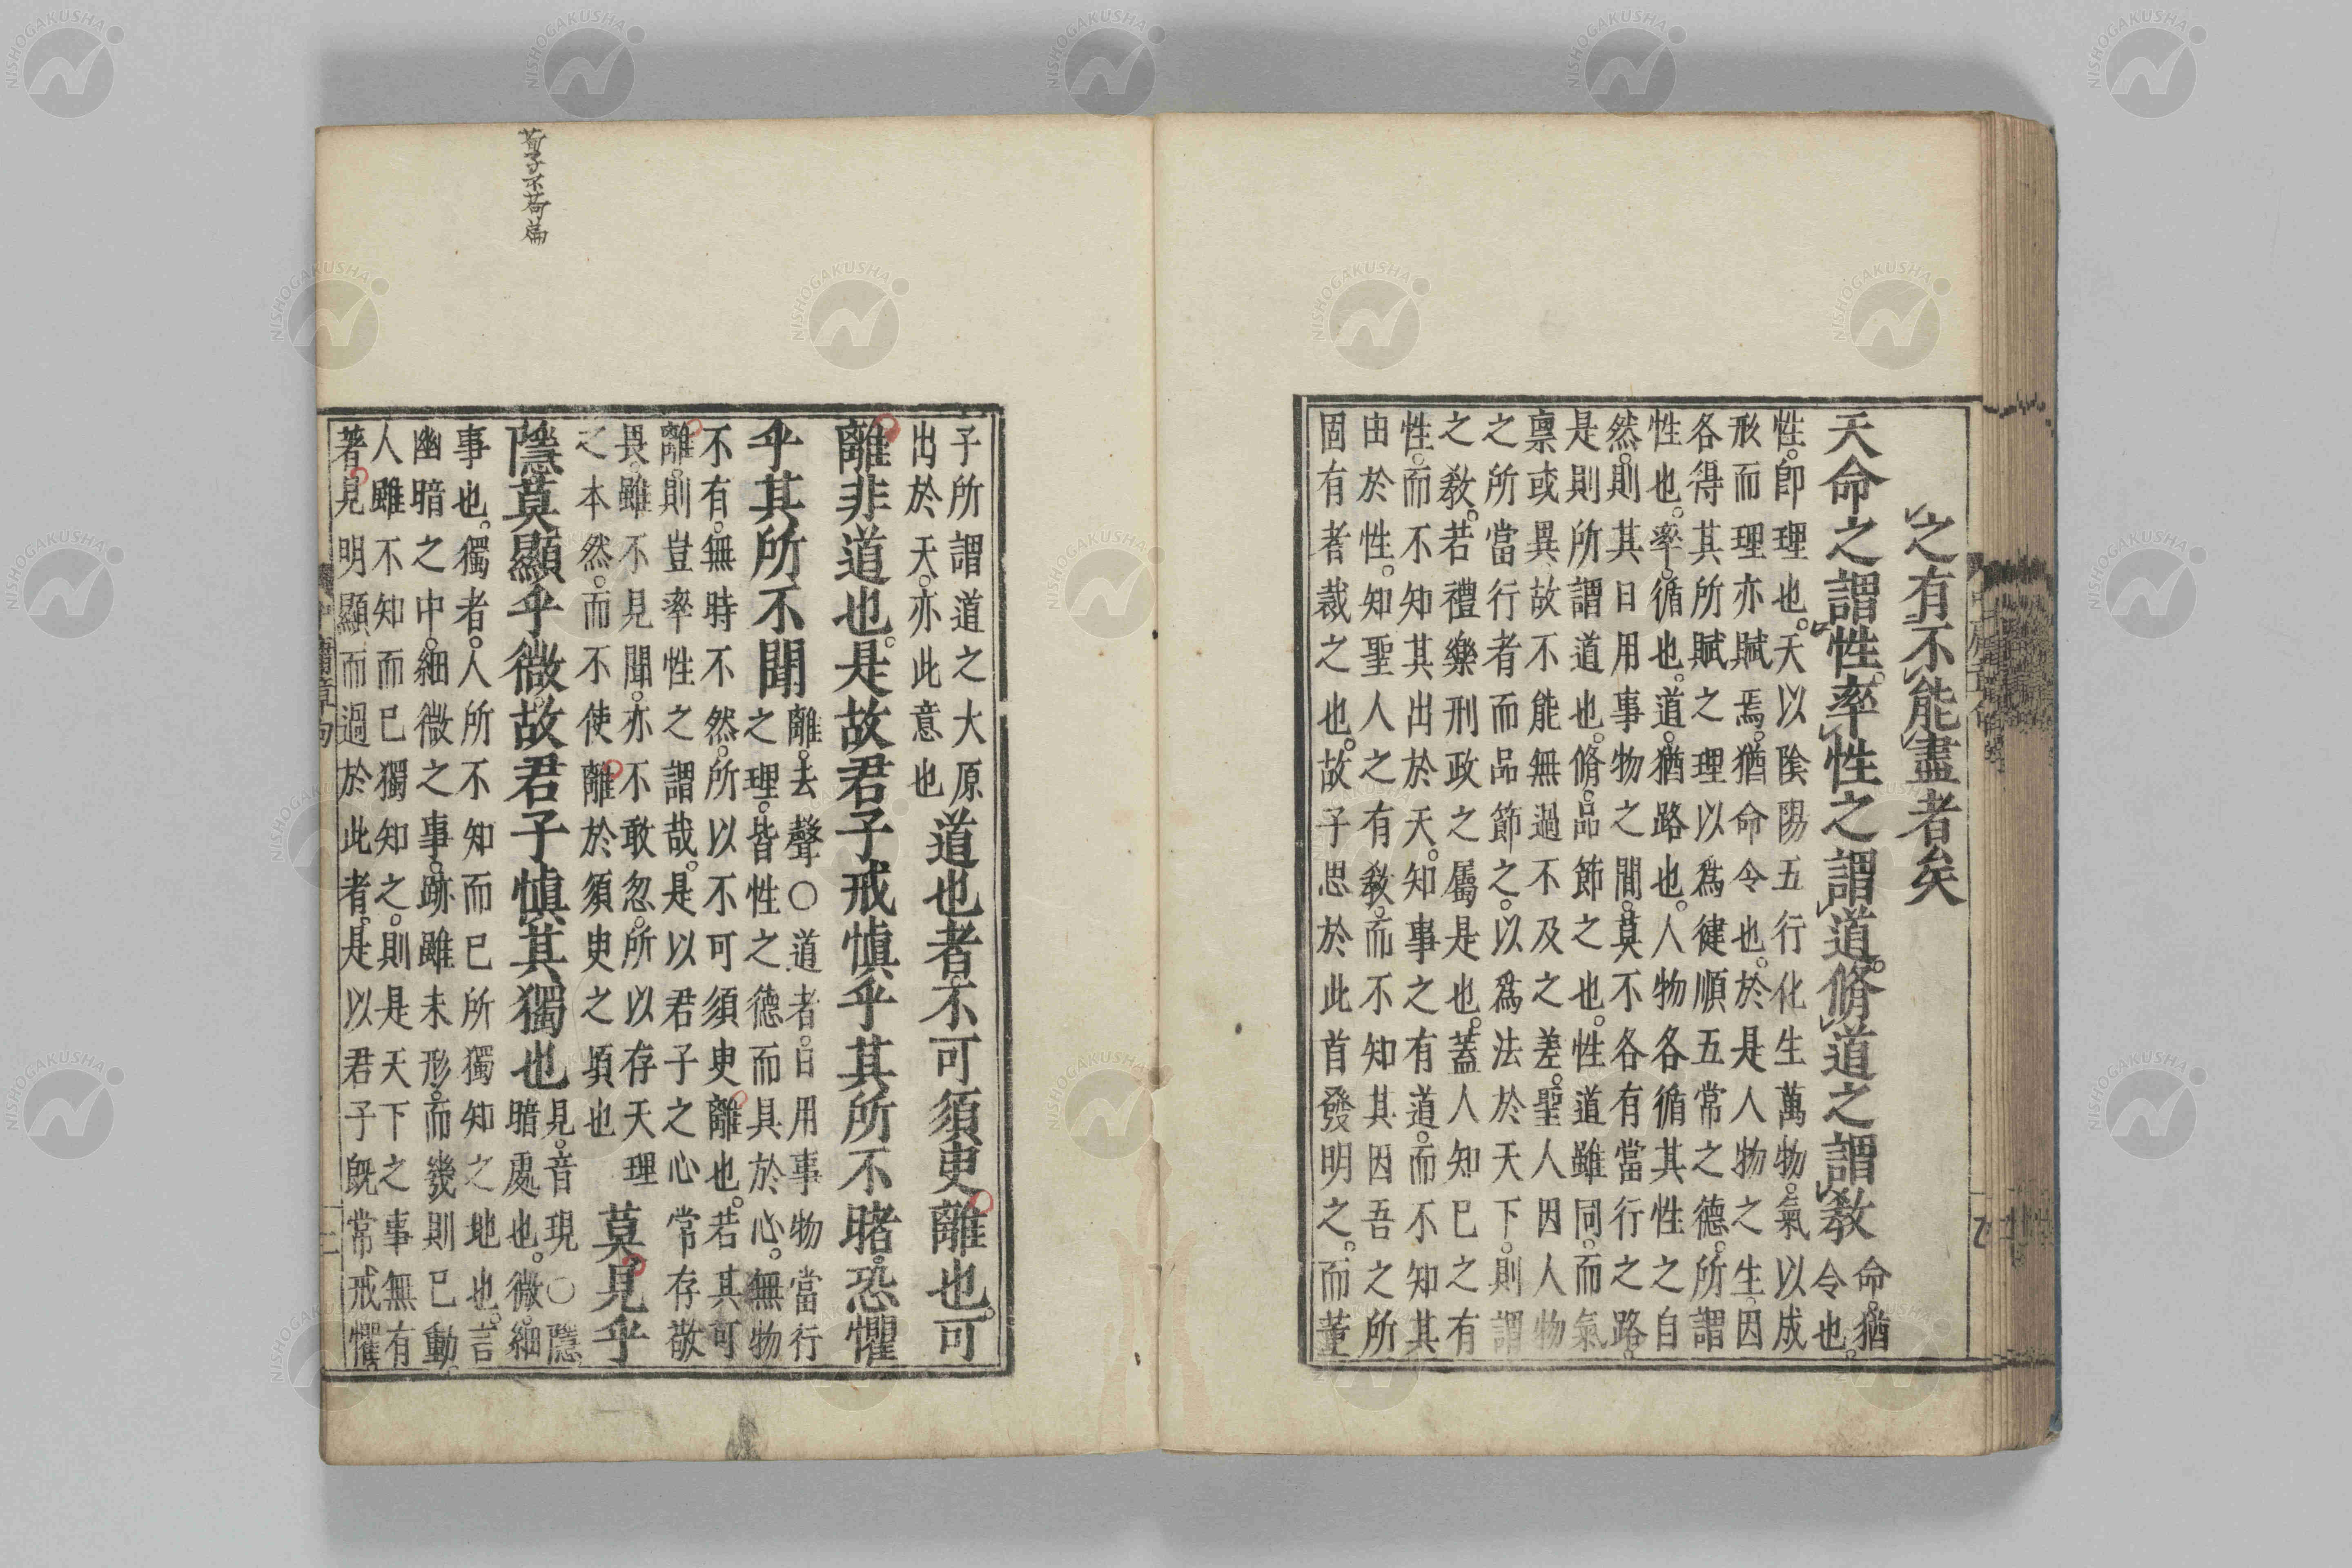 之有不能盡者矣
天命之謂性。率性之謂道。脩道之謂教
命。猶
令也。
性。即理也。天以陰陽五行化生萬物。氣以成
形而理亦賦焉。猶命令也。於是人物之生。因
各得其所賦之理以爲健順五常之德。所謂
性也。率。循也。道。猶路也。人物各循其性之自
然。則其日用事物之間。莫不各有當行之路。
是則所謂道也。脩。品節之也。性道雖同。而氣
稟或異。故不能無過不及之差。聖人因人物
之所當行者而品節之。以爲法於天下。則謂
之教。若禮樂刑政之屬是也。蓋人知己之有
性。而不知其出於天。知事之有道。而不知其
由於性。知聖人之有教。而不知其因吾之所
固有者裁之也。故子思於此首發明之。而董
子所謂道之大原
出於天。亦此意也
道也者。不可須臾離也。可
離非道也。是故君子戒慎乎其所不睹。恐懼
乎其所不聞
離。去聲○道者。日用事物當行
之理。皆性之德而具於心。無物
不有。無時不然。所以不可須臾離也。若其可
離。則豈率性之謂哉。是以君子之心常存敬
畏。雖不見聞。亦不敢忽。所以存天理
之本然。而不使離於須臾之頃也
莫見乎
隱。莫顯乎微。故君子慎其獨也
見。音現○隱
暗處也。微。細
事也。獨者。人所不知而己所獨知之地也。言
幽暗之中。細微之事。跡雖未形。而幾則已動。
人雖不知而己獨知之。則是天下之事無有
著見明顯而過於此者。是以君子既常戒懼。
荀子不苟篇
NISHOGAKUSHA